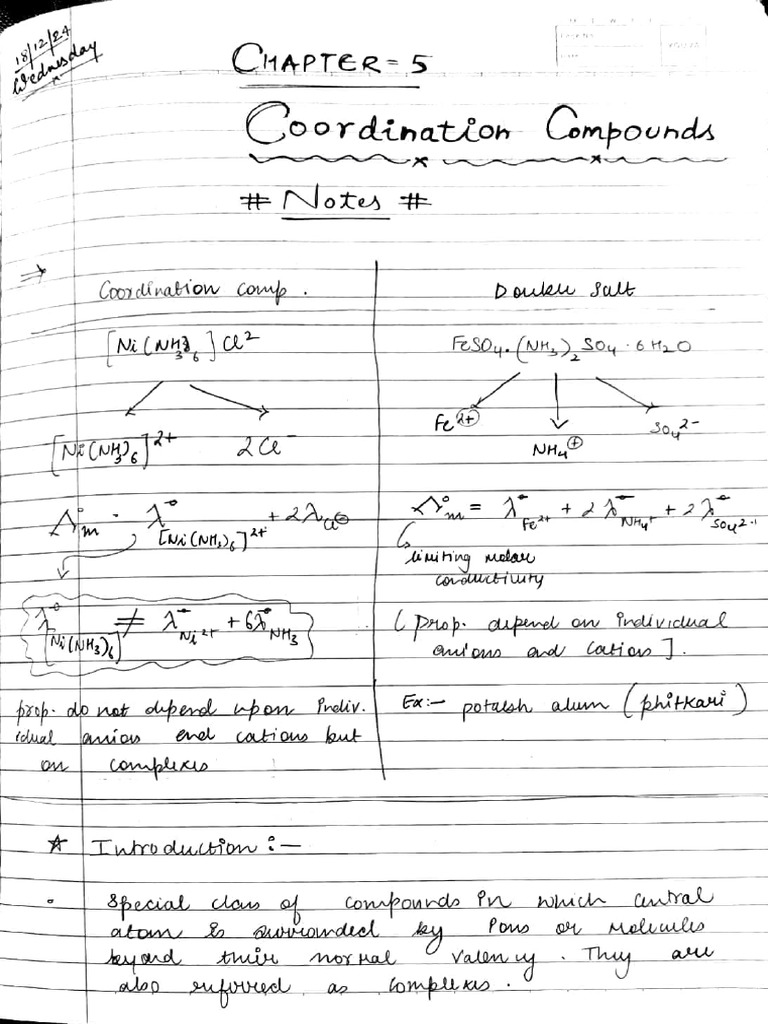 18/12/24
Wednesday
CHAPTER = 5
Coordination Compounds
# Notes #
⇒ Coordination comp. | Double salt
[Ni(NH3)6]Cl2 | FeSO4·(NH3)2SO4·6H2O
[Ni(NH3)6]2+ 2Cl- | Fe2+ NH4+ SO42-
Λ°m = λ°[Ni(NH3)6]2+ + 2λCl⊖ | Λ°m = λ°Fe2+ + 2λ°NH4+ + 2λ°SO42-
limiting molar
conductivity
λ°[Ni(NH3)6] ≠ λ°Ni2+ + 6λ°NH3 | (prop. depend on individual
anions and cations].
prop. do not depend upon indiv.
idual anions and cations but
on complexes
Ex:- potash alum (phitkari)
☆ Introduction :-
• Special class of compounds in which central
atom is surrounded by ions or molecules
beyond their normal valency. They are
also referred as complexes.